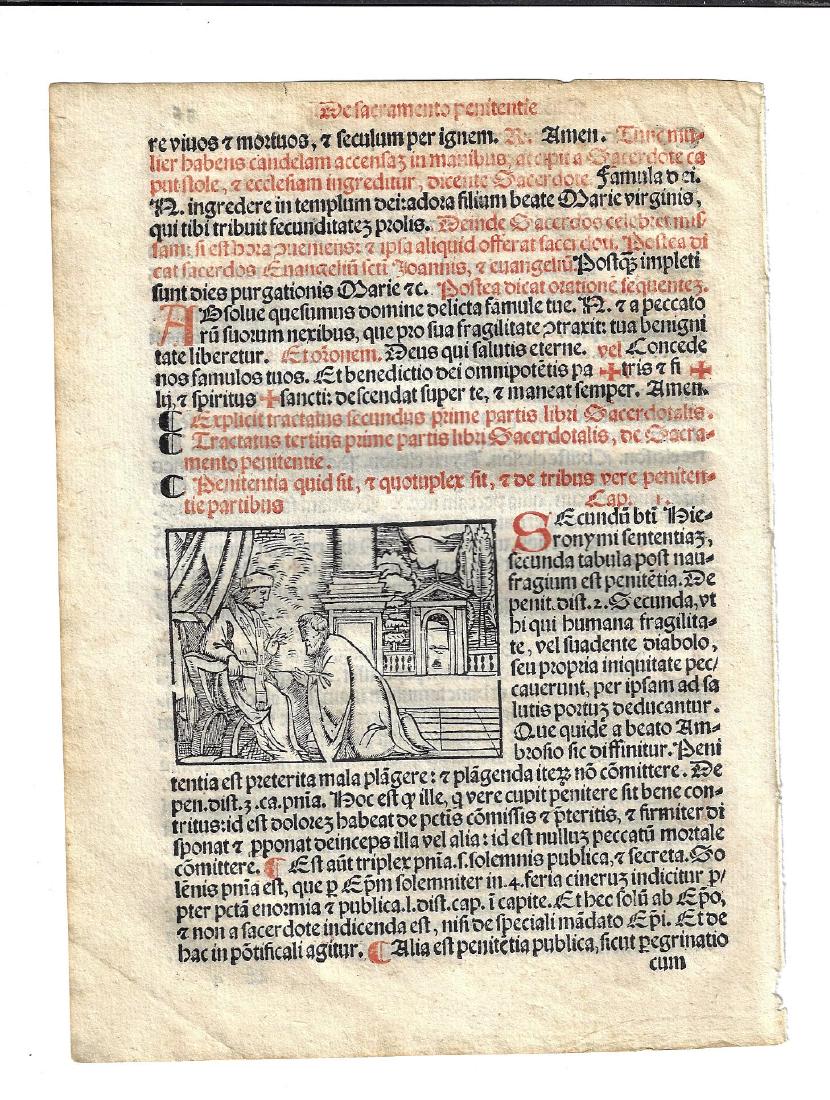 De sacramento penitentie
re viuos ⁊ mortuos, ⁊ seculum per ignem. R. Amen. Tunc mu-
lier habens candelam accensaꝫ in manibus, accipit a Sacerdote ca
put stole, ⁊ ecclesiam ingreditur, dicente Sacerdote. Famula dei.
N. ingredere in templum dei: adora filium beate Marie virginis,
qui tibi tribuit fecunditateꝫ prolis. Deinde Sacerdos celebret mis
sam: si est hora ↄueniens: ⁊ ipsa aliquid offerat sacerdoti. Postea di
cat sacerdos Euangeliū scti Joannis, ⁊ euangeliū. Postqꝫ impleti
sunt dies purgationis Marie ⁊c. Postea dicat orationē sequenteꝫ.
ABsolue quesumus domine delicta famule tue. N. ⁊ a peccato
rū suorum nexibus, que pro sua fragilitate ↄtraxit: tua benigni
tate liberetur. Et orōnem. Deus qui salutis eterne. vel Concede
nos famulos tuos. Et benedictio dei omnipotētis pa ✠ tris ⁊ fi ✠
lij, ⁊ spiritus ✠ sancti: descendat super te, ⁊ maneat semper. Amen.
¶ Explicit tractatus secundus prime partis libri Sacerdotalis.
¶ Tractatus tertius prime partis libri Sacerdotalis, de Sacra-
mento penitentie.
¶ Penitentia quid sit, ⁊ quotuplex sit, ⁊ de tribus vere peniten-
tie partibus Cap. .
SEcundū bti Hie-
ronymi sententiaꝫ,
secunda tabula post nau-
fragium est penitētia. De
penit. dist. 2. Secunda, vt
hi qui humana fragilita-
te, vel suadente diabolo,
seu propria iniquitate pec/
cauerunt, per ipsam ad sa
lutis portuꝫ deducantur.
Que quidē a beato Am-
brosio sic diffinitur. Peni
tentia est preterita mala plāgere: ⁊ plāgenda iteꝝ nō cōmittere. De
pen. dist. 3. ca. pnīa. Hoc est ꝙ ille, q vere cupit penitere sit bene con-
tritus: id est doloreꝫ habeat de pctis cōmissis ⁊ p̄teritis, ⁊ firmiter di
sponat ⁊ ꝓponat deinceps illa vel alia: id est nulluꝫ peccatū mortale
cōmittere. ¶ Est aūt triplex pnīa. s. solemnis publica, ⁊ secreta. So
lēnis pnīa est, que ꝑ Ep̄m solemniter in. 4. feria cineruꝫ indicitur ꝓ/
pter pctā enormia ⁊ publica. l. dist. cap. ī capite. Et hec solū ab Ep̄o,
⁊ non a sacerdote indicenda est, nisi de speciali mādato Ep̄i. Et de
hac in pōtificali agitur. ¶ Alia est penitētia publica, sicut ꝑegrinatio
cum